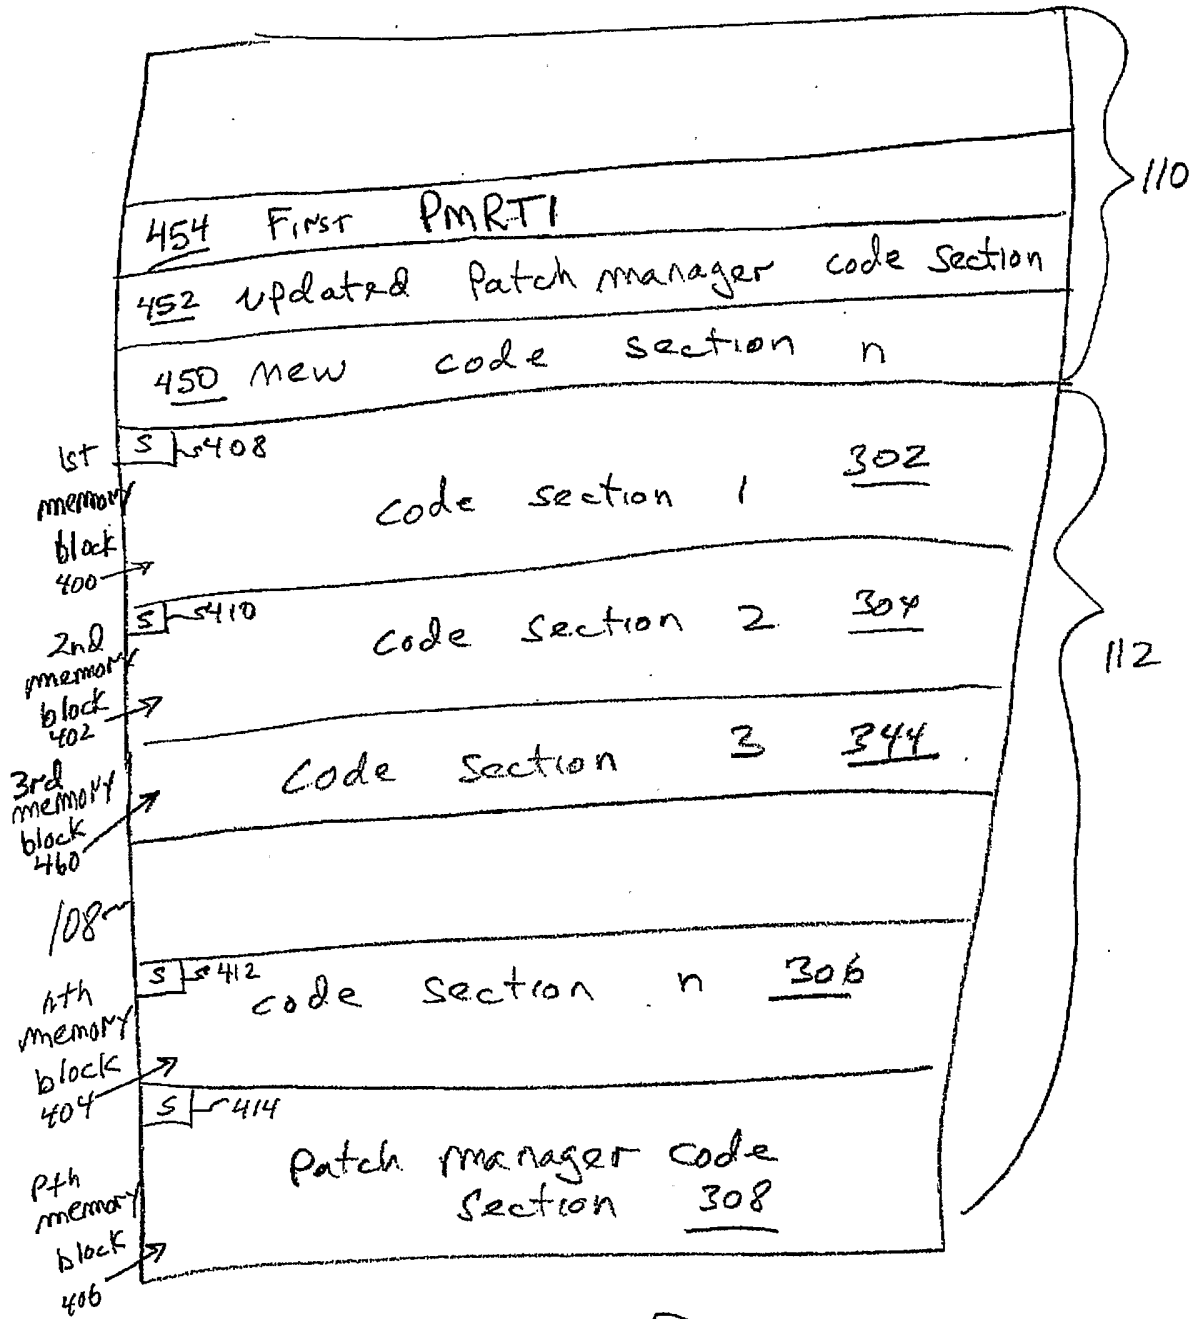 110
454 First PMRTI
452 updated Patch manager code section
450 new code section n
1st
memory
block
400
S 408
code section 1 302
2nd
memory
block
402
S 410
code section 2 304
112
3rd
memory
block
460
code section 3 344
108
nth
memory
block
404
S 412
code section n 306
S 414
Pth
memory
block
406
Patch manager code
section 308